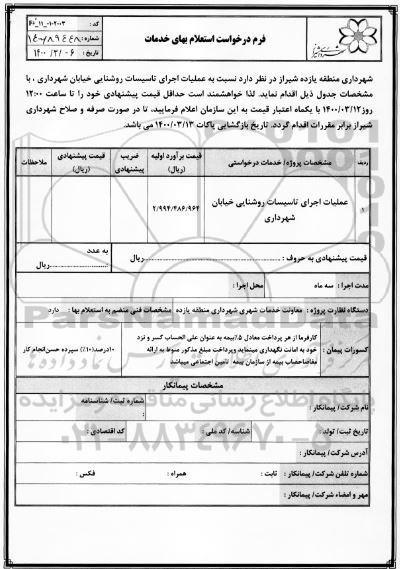 فرم درخواست استعلام بهای خدمات
کد :
شماره :
تاریخ : ۱۴۰۰/۳/۰۶
شهرداری منطقه یازده شیراز در نظر دارد نسبت به عملیات اجرای تاسیسات روشنایی خیابان شهرداری ، با
مشخصات جدول ذیل اقدام نماید. لذا خواهشمند است حداقل قیمت پیشنهادی خود را تا ساعت ۱۲:۰۰
روز ۱۴۰۰/۰۳/۱۲ با یکماه اعتبار قیمت به این سازمان اعلام فرمایید، تا در صورت صرفه و صلاح شهرداری
شیراز برابر مقررات اقدام گردد. تاریخ بازگشایی پاکات ۱۴۰۰/۰۳/۱۳ می باشد.
ردیف
مشخصات پروژه/ خدمات درخواستی
قیمت برآورد اولیه (ریال)
ضریب پیشنهادی
قیمت پیشنهادی (ریال)
ملاحظات
۱
عملیات اجرای تاسیسات روشنایی خیابان
شهرداری
۲/۹۹۴/۴۸۶/۹۶۴
قیمت پیشنهادی به حروف : ریال
به عدد
: ریال
مدت اجرا : سه ماه
محل اجرا :
دستگاه نظارت پروژه : معاونت خدمات شهری شهرداری منطقه یازده
مشخصات فنی منضم به استعلام بها : دارد
کسورات پیمان :
کارفرما از هر پرداخت معادل ۵٪ بیمه به عنوان علی الحساب کسر و نزد
خود به امانت نگهداری مینماید وپرداخت مبلغ مذکور منوط به ارائه
مفاصاحساب بیمه از سازمان بیمه تامین اجتماعی میباشد
۱۰درصد(۱۰٪) سپرده حسن انجام کار
مشخصات پیمانکار
نام شرکت/ پیمانکار :
شماره ثبت/ شناسنامه
:
تاریخ ثبت/ تولد :
شناسه/ کد ملی :
کد اقتصادی :
آدرس شرکت/ پیمانکار :
شماره تلفن شرکت/ پیمانکار : ثابت :
همراه :
فکس :
مهر و امضاء شرکت/ پیمانکار :
۰۲۱-۸۸۳۴۹۶۷۰-۵